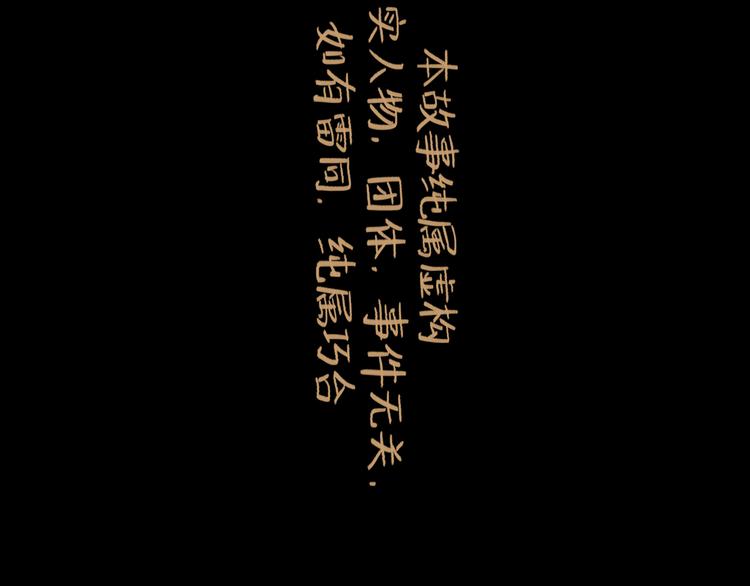 本故事纯属虚构
实人物.团体.事件无关.
如有雷同.纯属巧合